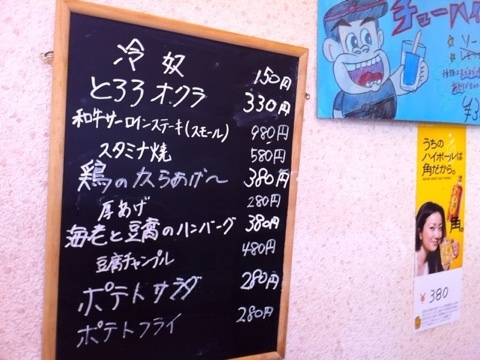 冷奴 150円
とろろオクラ 330円
和牛サーロインステーキ(スモール) 980円
スタミナ焼 580円
鶏のからあげ〜 380円
厚あげ 280円
海老と豆腐のハンバーグ 380円
豆腐チャンプル 480円
ポテトサラダ 280円
ポテトフライ 280円
チューハイ
うちの
ハイボールは
角だから。
角。
¥380